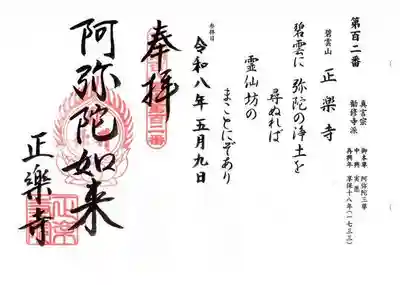 第百二番
真言宗
勧修寺派
碧雲山 正楽寺
御本尊 阿弥陀三尊
中興 実恵
再興年 享保十八年(一七三三)
碧雲に 弥陀の浄土を
尋ぬれば
霊仙坊の
まことにぞあり
参拝日
令和八年 五月九日
奉拝
百二番
阿弥陀如来
正楽寺